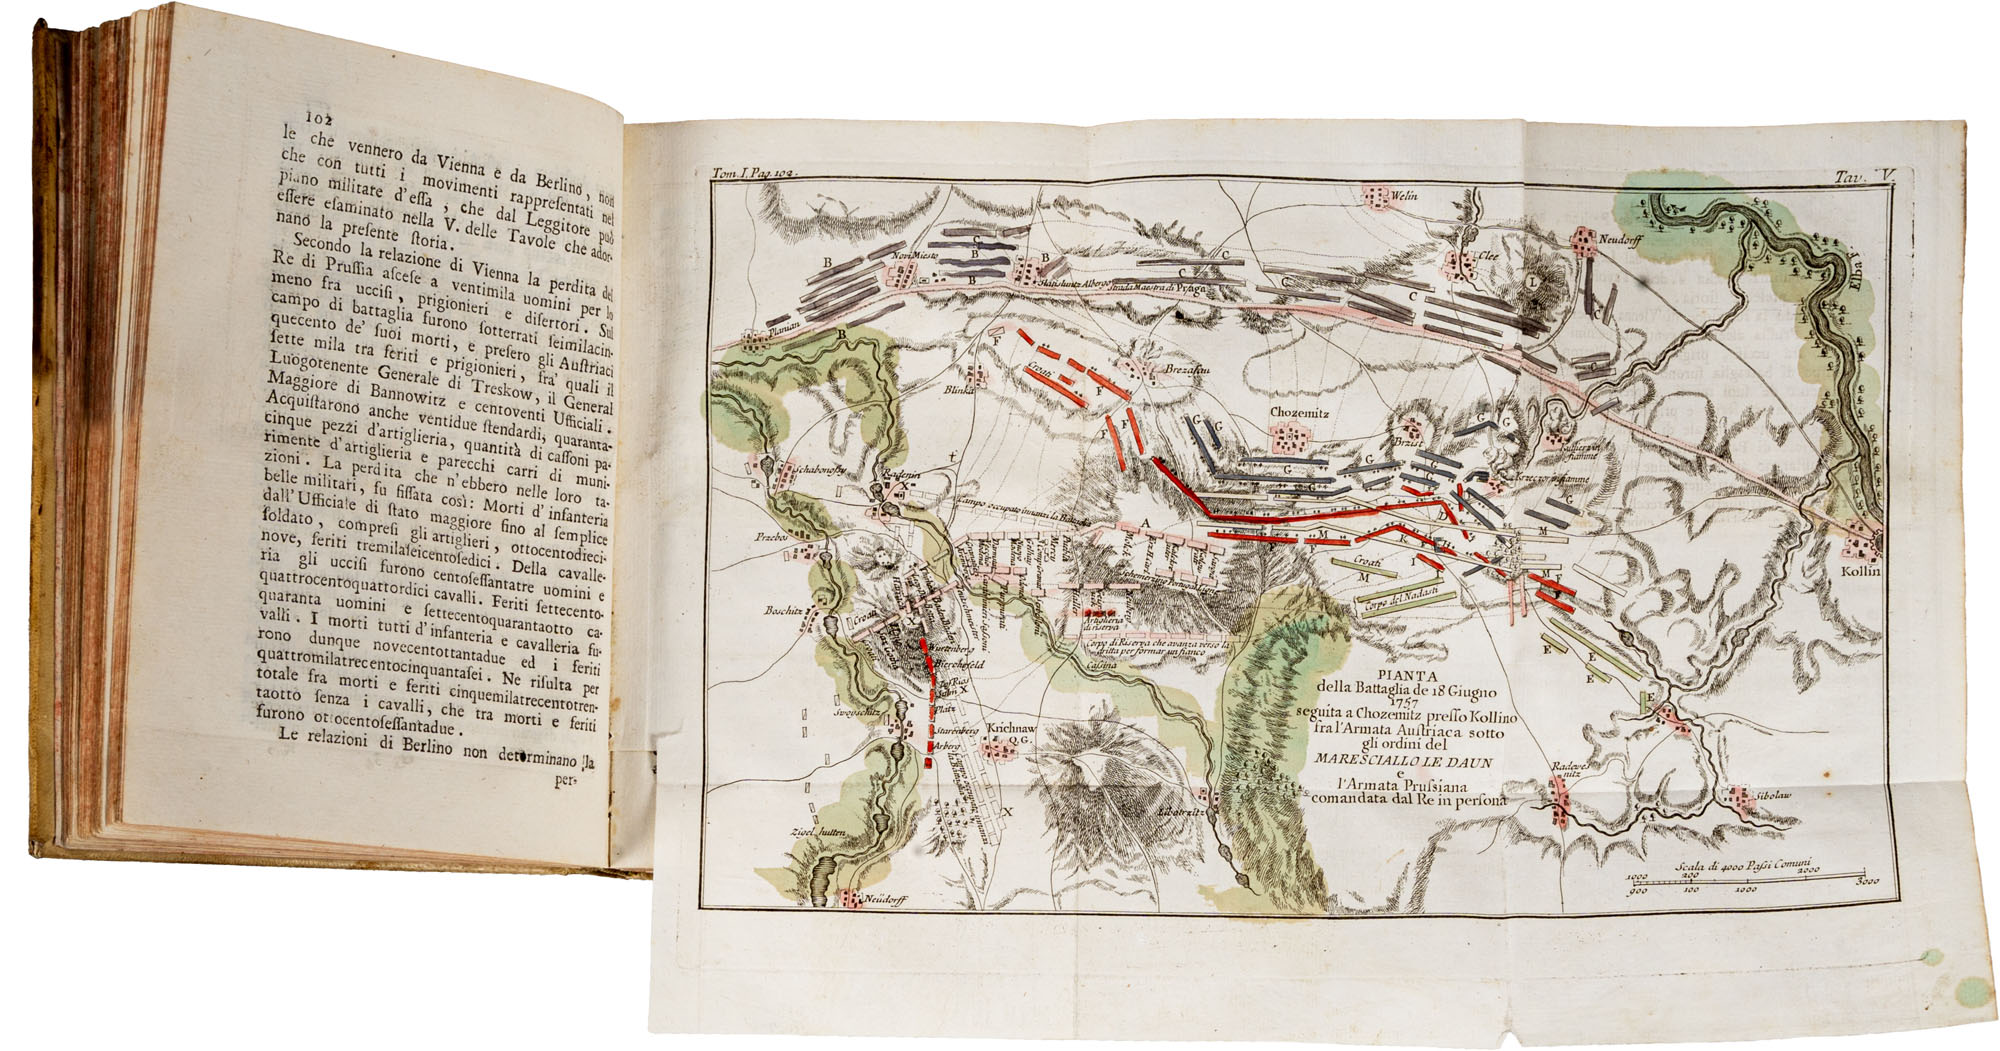 102
le che vennero da Vienna e da Berlino, non
che con tutti i movimenti rappresentati nel
piano militare d'eſſa, che dal Leggitore può
eſſere eſaminato nella V. delle Tavole che ador-
nano la preſente ſtoria.
Secondo la relazione di Vienna la perdita del
Re di Pruſſia aſceſe a ventimila uomini per lo
meno fra ucciſi, prigionieri e diſertori. Sul
campo di battaglia furono ſotterrati ſeimilacin-
quecento de' ſuoi morti, e preſero gli Auſtriaci
ſette mila tra feriti e prigionieri, fra' quali il
Luogotenente Generale di Treskow, il General
Maggiore di Bannowitz e centoventi Ufficiali.
Acquiſtarono anche ventidue ſtendardi, quaranta-
cinque pezzi d'artiglieria, quantità di caſſoni pa-
rimente d'artiglieria e parecchi carri di muni-
zioni. La perdita che n'ebbero nelle loro ta-
belle militari, fu fiſſata così: Morti d'infanteria
dall'Ufficiale di ſtato maggiore fino al ſemplice
ſoldato, compreſi gli artiglieri, ottocentodieci-
nove, feriti tremilaſeicentoſedici. Della cavalle-
ria gli ucciſi furono centoſeſſantatre uomini e
quattrocentoquattordici cavalli. Feriti ſettecento-
quaranta uomini e ſettecentoquarantaotto ca-
valli. I morti tutti d'infanteria e cavalleria fu-
rono dunque novecentottantadue ed i feriti
quattromilatrecentocinquantaſei. Ne riſulta per
totale fra morti e feriti cinquemilatrecentotren-
taotto ſenza i cavalli, che tra morti e feriti
furono ottocentoſeſſantadue.
Le relazioni di Berlino non determinano la
per-
Tom. I. Pag. 102.
Tav. V.
Welin
Neudorff
Clee
Elba F.
Novi Miesto
Slatisluntz Albergo
Strada Maestra di Praga
Planian
Blinka
Brezasau
Croati
Chozemitz
Brzist
Schabonosty
Radenin
Campo occupato innanzi la Battaglia
Przebos
Boschitz
Kollin
Croati
Corpo del Nadasti
Artiglieria
di riserva
Corpo di Riserva che avanza verso la
dritta per formar un fianco
Cassina
Swoyschitz
Starenberg
Arberg
Platz
Krichnaw
Q.G.
Libotrzitz
Ziegl hutten
Neüdorff
PIANTA
della Battaglia de 18 Giugno
1757
seguita a Chozemitz preſſo Kollino
fra l'Armata Auſtriaca sotto
gli ordini del
MARESCIALLO LE DAUN
e
l'Armata Pruſsiana
comandata dal Re in persona
Radowes
nitz
Sibolaw
Scala di 4000 Paſsi Comuni
1000 200 2000
900 100 1000 3000